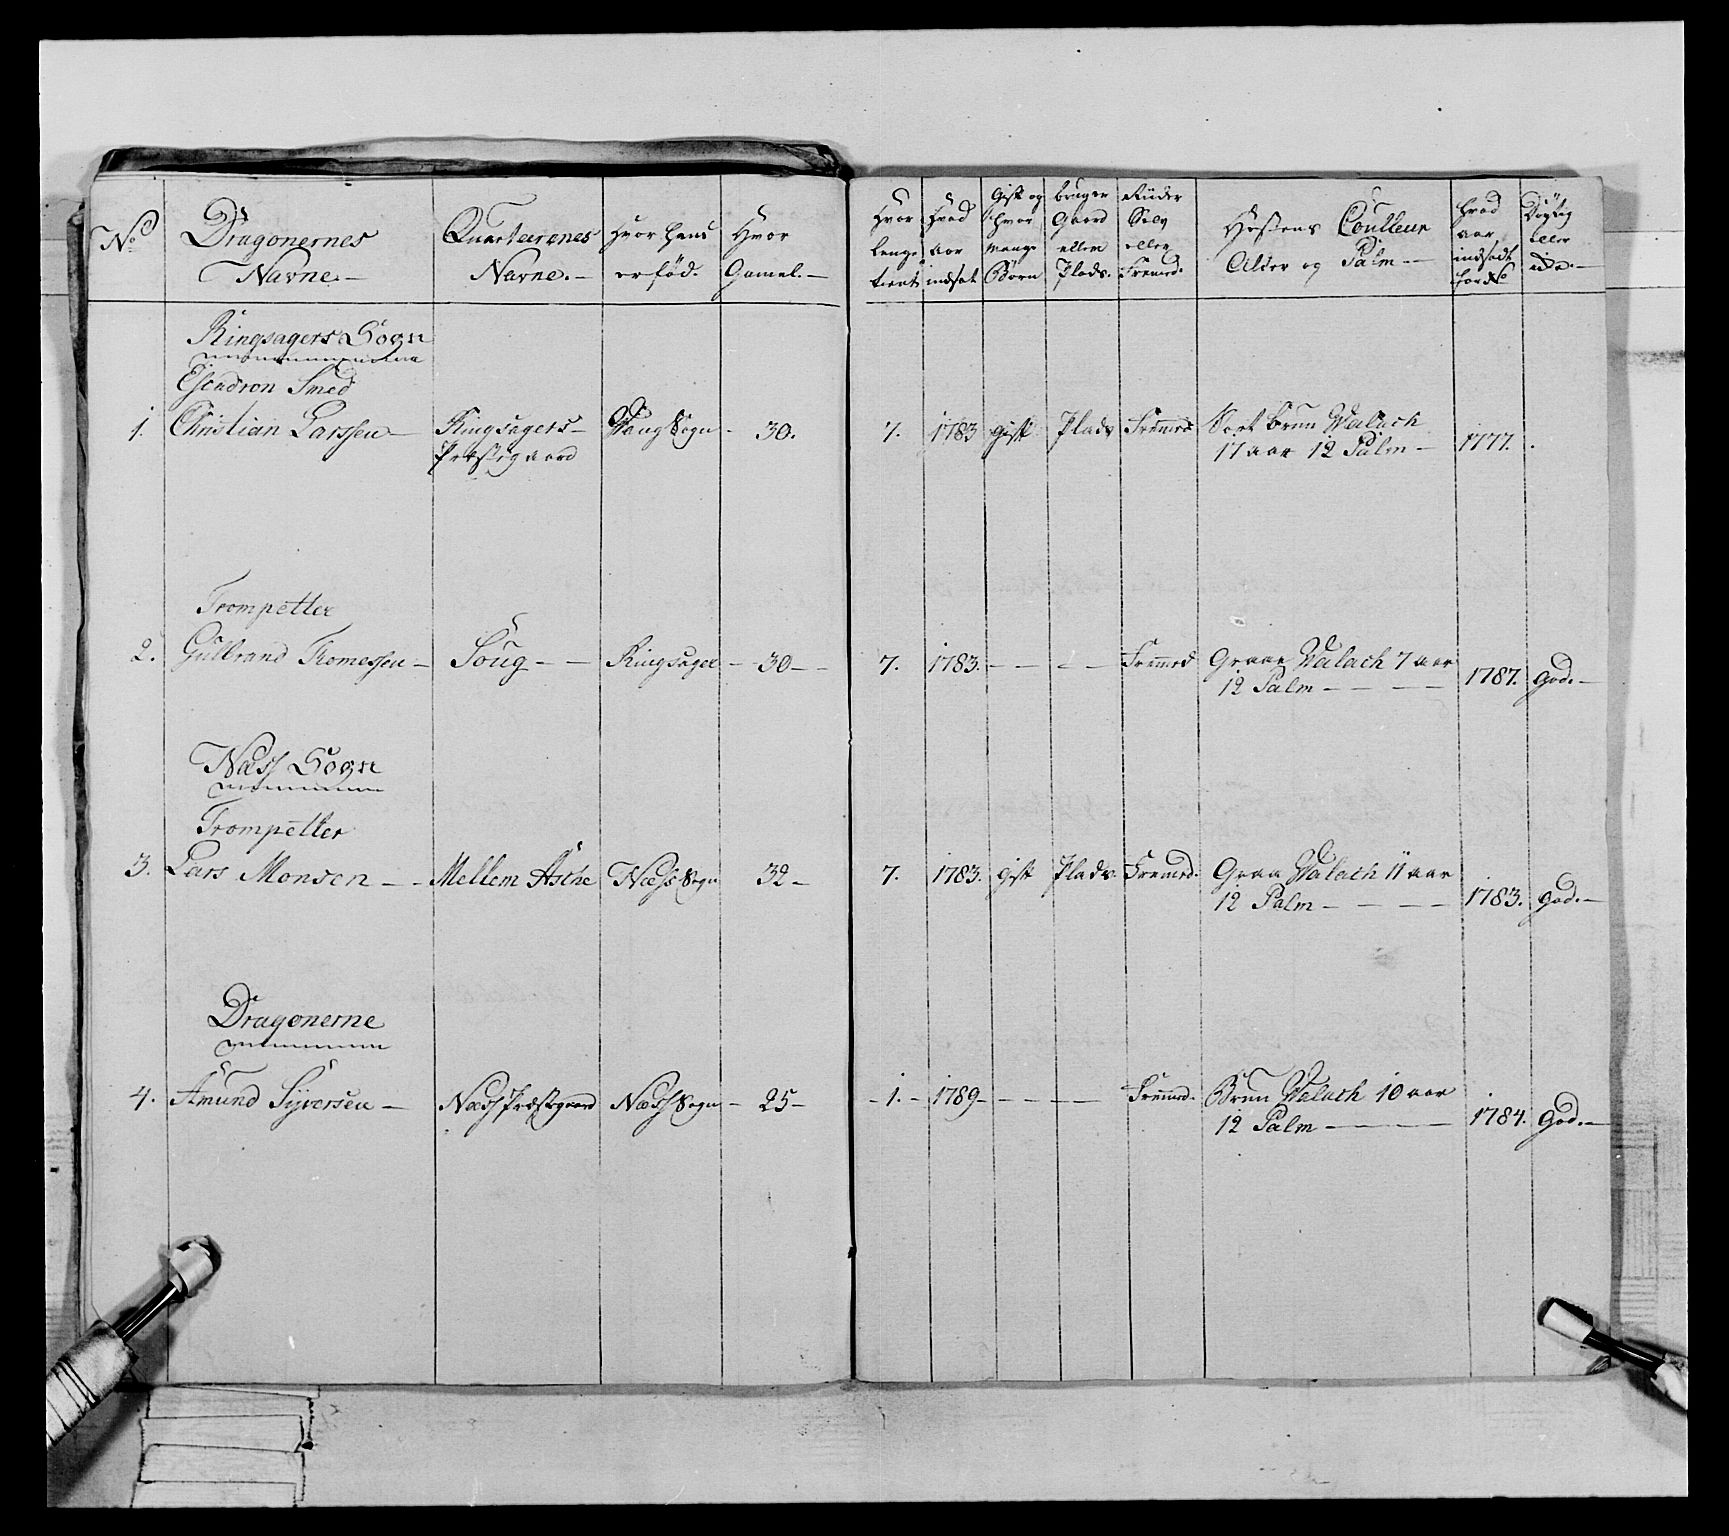 No Dragonernes Navne.— Quarteerenes Navne.— Hvor hans er fød. Hvor Gamel.— Hvor lenge tient Hvad aar indsat Gift og hvor mange Børn bruger Gaard eller Plads. Riider Selv eller Fremed. Hæstens Coulleur Alder og Palm— hvad aar indsadt for No Døgtig eller ide.—
Ringsagers Sogn
Escadron Smed
1. Christian Larssen— Ringsagers— Wang Sogn - 30. 7. 1783 gift Plads Fremed Sort brun Walach
Præstegaard 17 aar 12 Palm— 1777.
Trompetter
2. Gulbrand Tomessen— Soug — — Ringsager - 30 — 7. 1783. — — — — Fremed Graae Walach 7 aar
12 Palm — — — — 1787. God.—
Næss Sogn
Trompetter
3. Lars Monsen — — Mellem Asche Næss Sogn 32— 7. 1783. gift Plads. Fremed. Graa Walach 11 aar
12 Palm — — — — 1783. God.—
Dragonerne
4. Amund Syversen — Næss Præstgaard Næss Sogn - 25— -1.- 1789 — — — — Fremed. Brun Walach 10 aar
12 Palm — — — — 1784. God.—